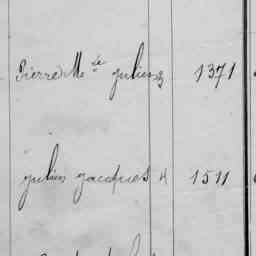 Pierre M le julien 3 1371
julien jacques 4 1511